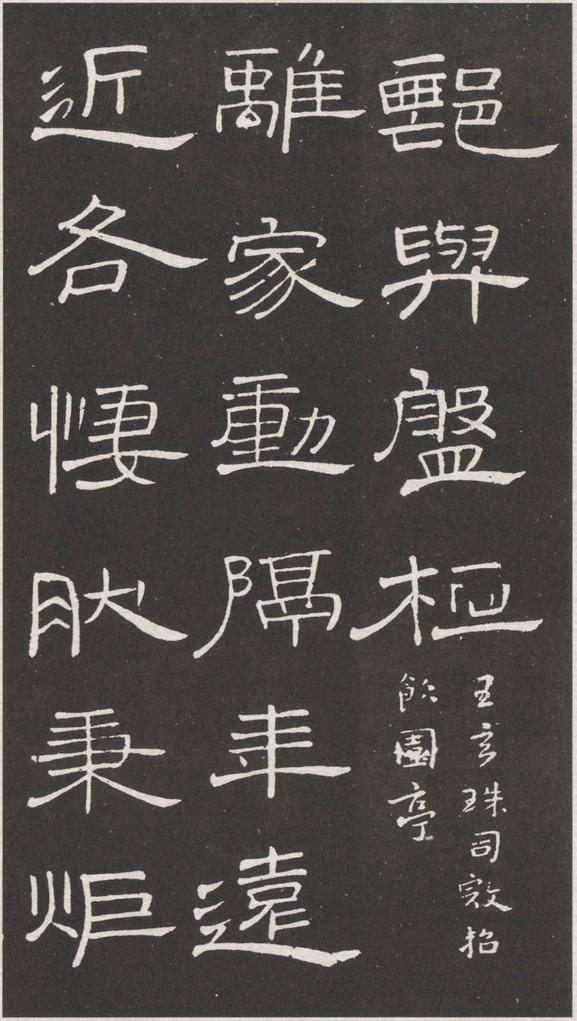 與盤桓
王玄珠司寇招
飲園亭
離家動隔年遠
近各悽肰秉炬